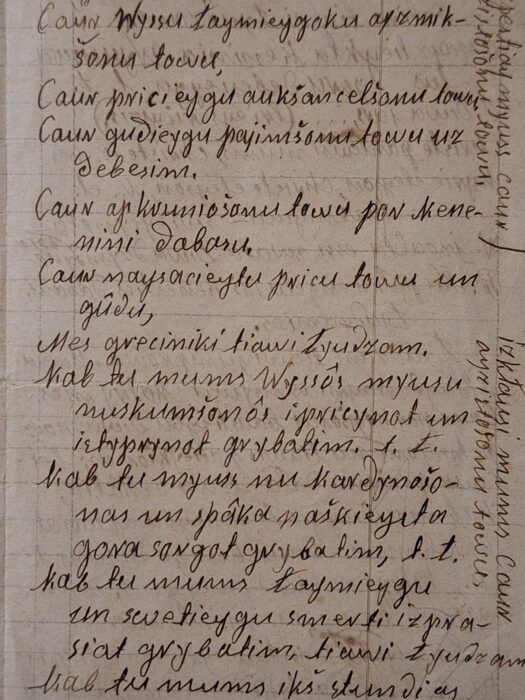 Caur Wyssu łaymieygoku apzmik-
šonu towu,
Caur pricieygu aukšancelšonu towu,
Caur gudieygu pajimšonu towu uz
debesim.
Caur apkruniošonu towu por kene-
nini dabasu,
Caur naysacieytu pricu towu un
gûdu,
Mes greciniki tiawi łyudzam.
Kab tu mums Wyssôs myusu
nuskumšonôs ipricynot un
istyprynot grybatim. t. t.
Kab tu myuss nu kardynošo-
nas un spâka naškieysta
gora sorgot grybatim, t. t.
Kab tu mums łaymieygu
un swetieygu smerti izpra-
siat grybatim, tiawi łyudzam
Kab tu mums ikš stundias
pestiay myuss caur)
towu.
izklausi mums Caur
towu,